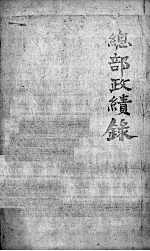 總部政績錄